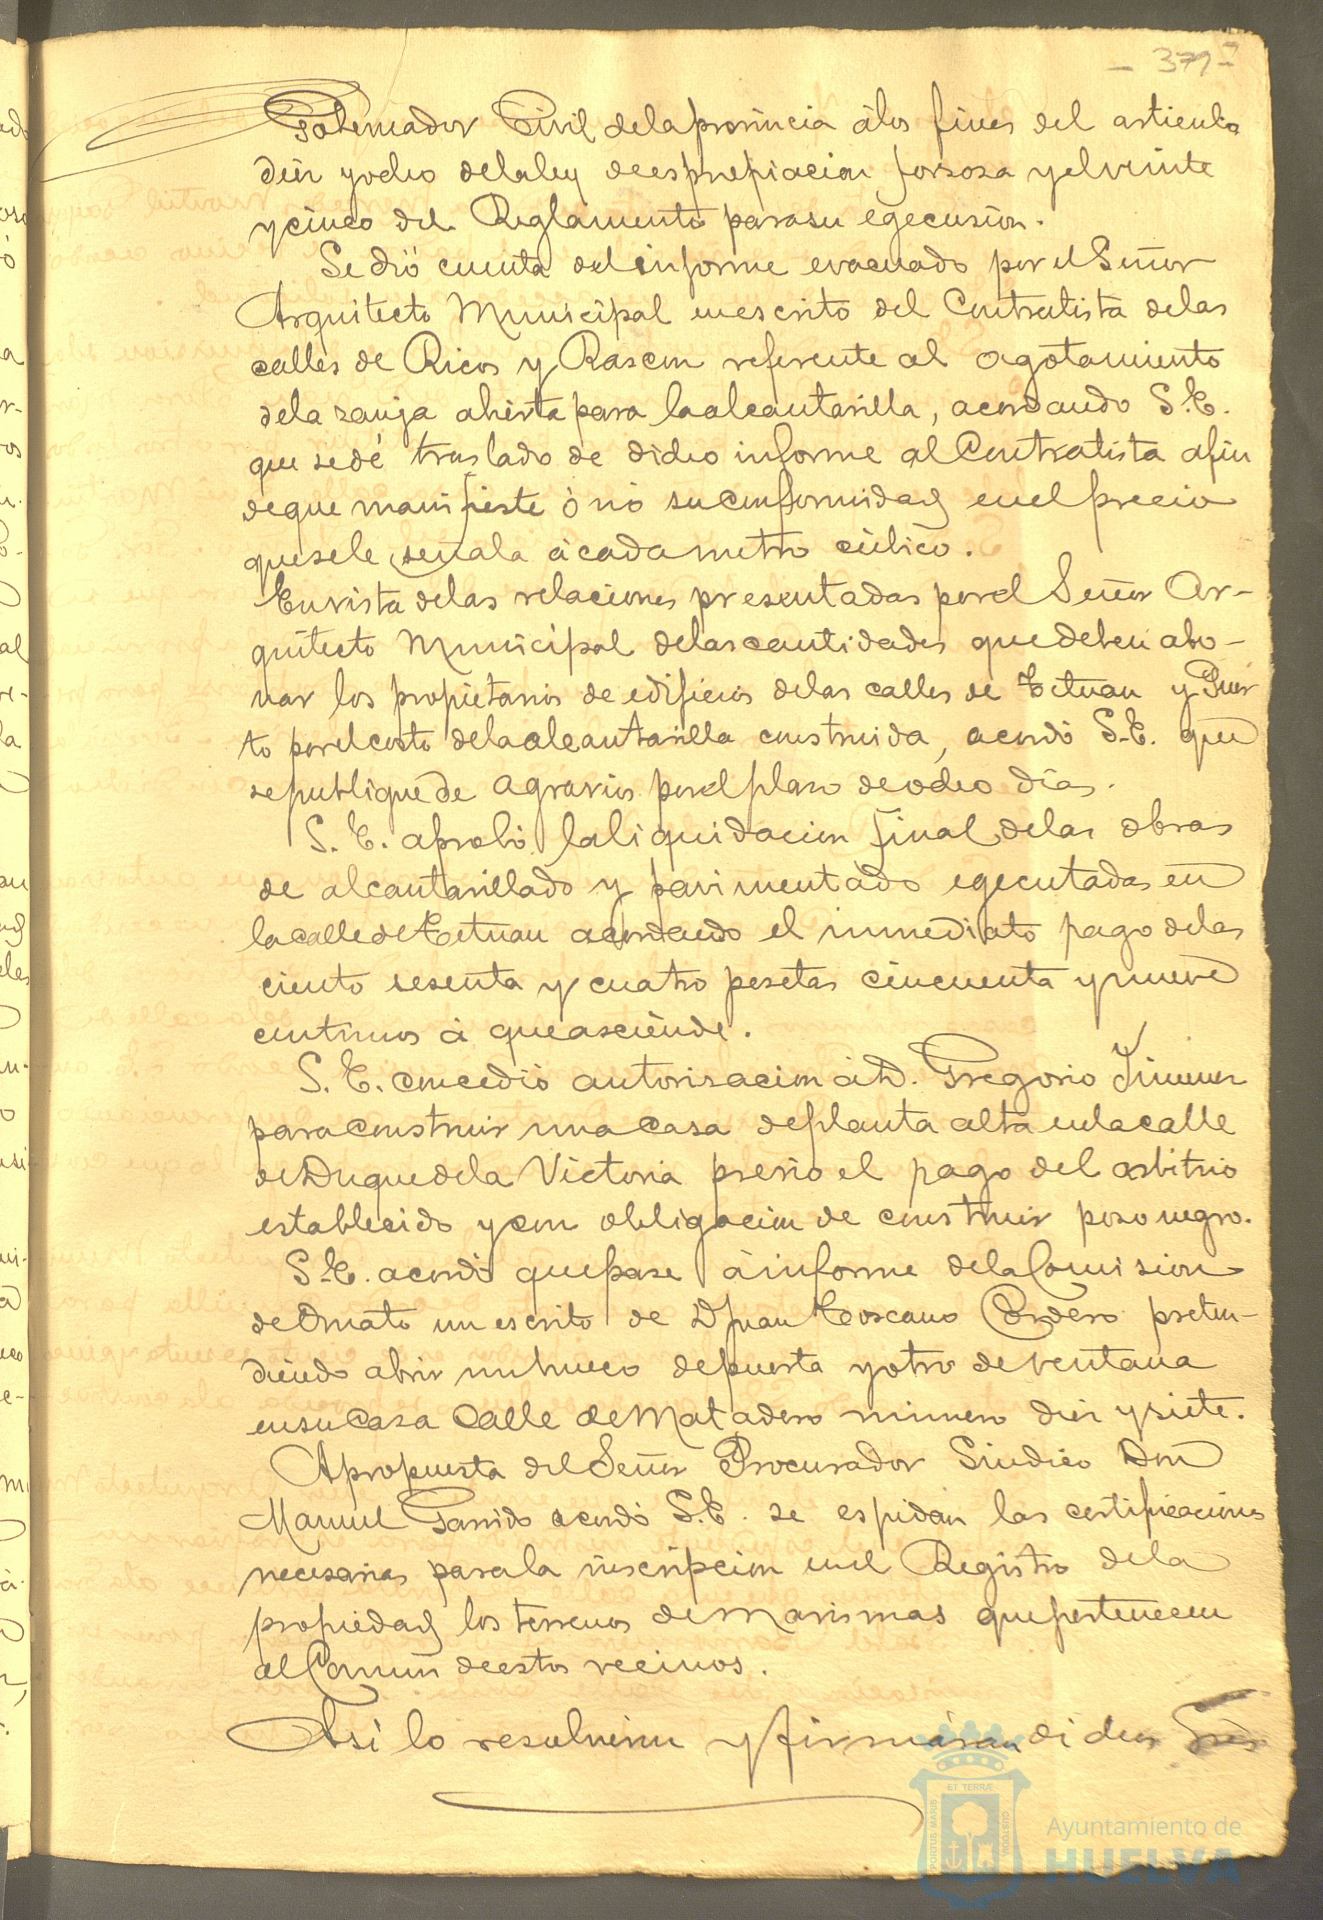 - 371 -
Gobernador Civil dela provincia á los fines del articulo
diez y ocho dela ley de espropiacion forzosa y el veinte
y cinco del Reglamento para su egecusion.
Se dió cuenta del informe evacuado por el Señor
Arquitecto Municipal en escrito del Contratista delas
calles de Ricos y Rascon referente al agotamiento
dela zanja abierta para la alcantarilla, acordando S.E.
que se dé traslado de dicho informe al Contratista afin
de que manifieste ó nó su conformidad en el precio
que se le señala á cada metro cúbico.
En vista delas relaciones presentadas por el Señor Ar-
quitecto Municipal delas cantidades que deben abo-
nar los propietarios de edificios delas calles de Tetuan y Puer
to por el costo dela alcantarilla construida, acordó S.E. que
se publique de agravios por el plazo de ocho días.
S.E. aprobó la liquidacion final delas obras
de alcantarillado y pavimentado egecutadas en
la calle de Tetuan acordando el inmediato pago delas
ciento sesenta y cuatro pesetas cincuenta y nueve
centimos á que asciende.
S.E. concedió autorisacion á D. Gregorio Jimenez
para construir una casa de planta alta en la calle
de Duque dela Victoria previo el pago del arbitrio
establecido y con obligacion de construir poso negro.
S.E. acordó que pase á informe dela Comision
de Ornato un escrito de D Juan Toscano Cordero preten-
diendo abrir un hueco de puerta y otro de ventana
en su casa calle de Matadero número diez y siete.
A propuesta del Señor Procurador Sindico Don
Manuel Garrido acordó S.E. se espidan las certificaciones
necesarias para la inscripcion en el Registro dela
propiedad los terrenos de Marismas que pertenecen
al Comun de estos vecinos.
Así lo resolvieron y firmáran dichos Sres
PORTUS MARIS
ET TERRÆ
CUSTODIA
Ayuntamiento de
HUELVA